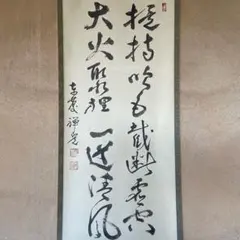 提持吹毛截断虚空
大火聚裡一道清風